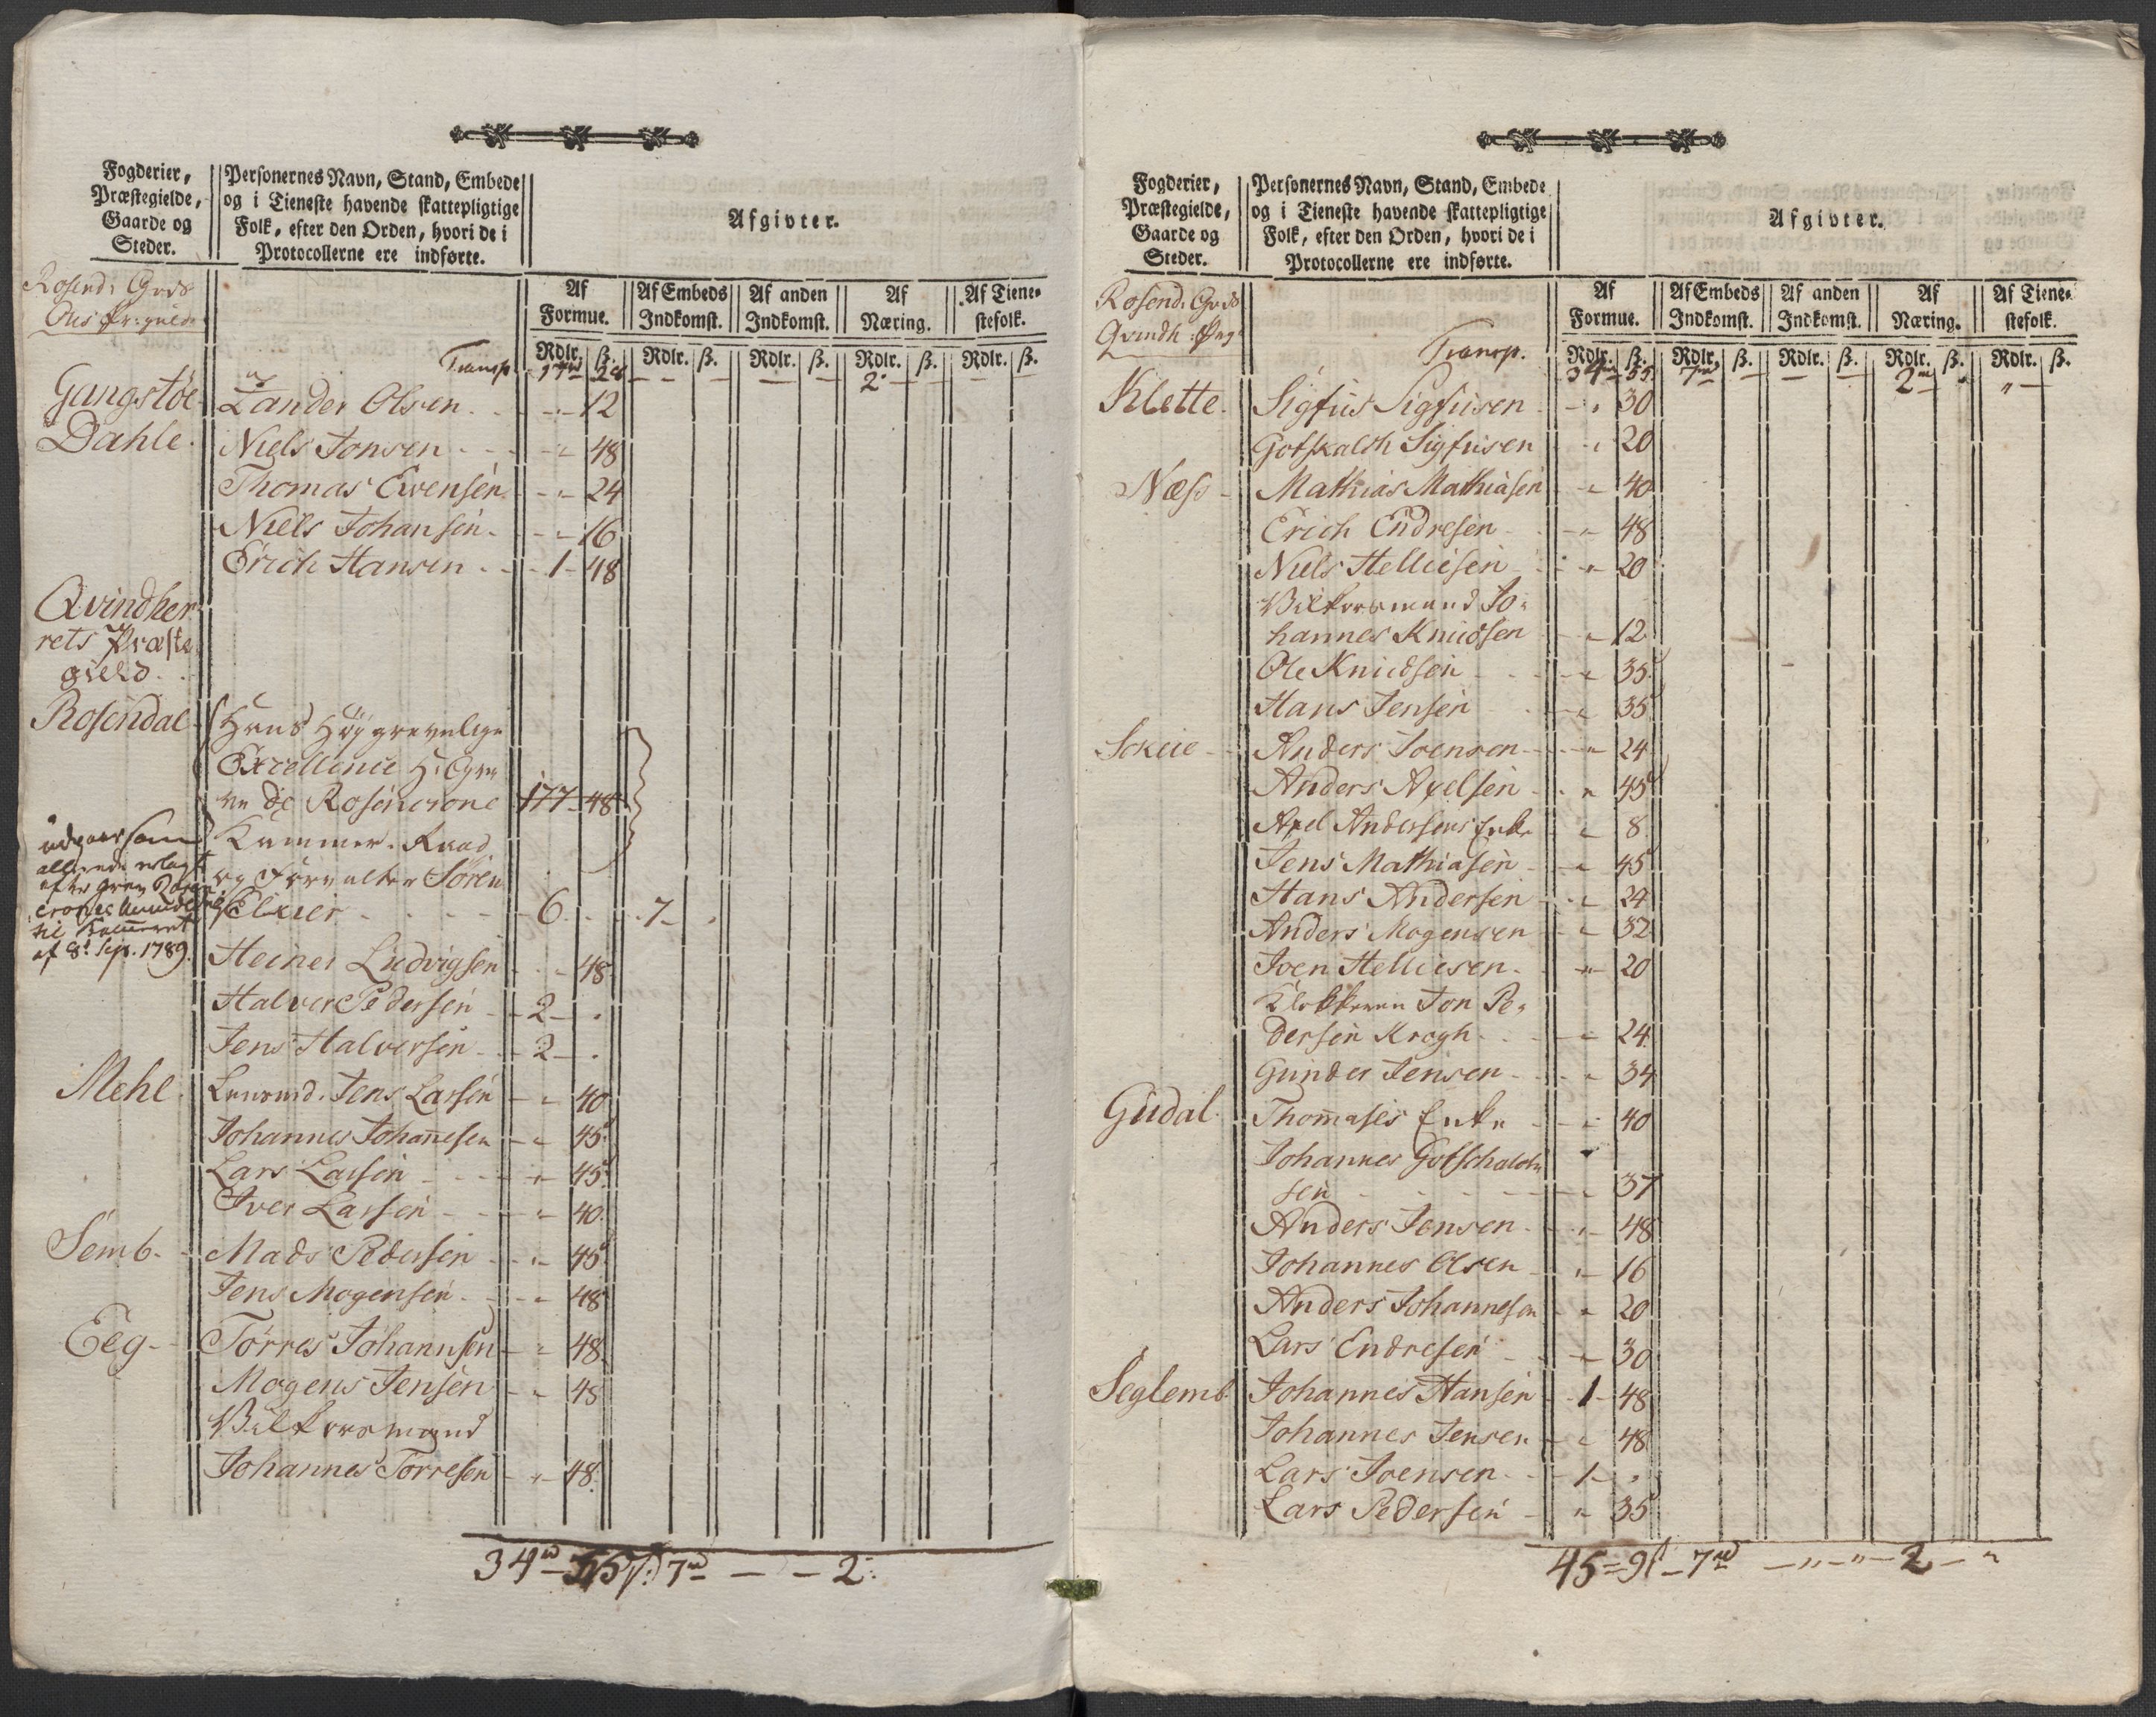 Fogderier,
Præstegielde,
Gaarde og
Steder.
Personernes Navn, Stand, Embede
og i Tieneste havende skattepligtige
Folk, efter den Orden, hvori de i
Protocollerne ere indførte.
Afgivter.
Rosend: Gods
Af Formue. Af Embeds Indkomst. Af anden Indkomst. Af Næring. Af Tienestefolk.
Rdlr. ß. Rdlr. ß. Rdlr. ß. Rdlr. ß. Rdlr. ß.
Transp
Gangstøe Zander Olsen - 12
Dahle Niels Jonsen - 48
Thomas Evensen - 24
Niels Johansen - 16
Erich Hansen - 1 - 48
Qvindher
rets Præste
gield
Rosendal Hans Høygrevelige
Excellence Hr Gre
ve de Rosencrone 177 - 48
Kammer-Raad
og Forvalter Søren
Elxier - 6 - 7 -
udgaar som
allerede erlagt
efter Grev Rosen
crones Anmeldelse
til Kammeret
af 8d Sep. 1789.
Heiner Ludvigsen - 48
Halver Pedersen - 2 -
Jens Halversen - 2 -
Mehl Lensmd. Jens Larsen - 40
Johannes Johannesen - 45
Lars Larsen - 45
Iver Larsen - 40
Semb Mads Pedersen - 45
Jens Mogensen - 48
Eeg Tørres Johannsen - 48
Mogens Jensen - 48
Vilkorsmand
Johannes Torresen - 48
34 rd 55 ß: 7 rd - - 2:
Fogderier,
Præstegielde,
Gaarde og
Steder.
Personernes Navn, Stand, Embede
og i Tieneste havende skattepligtige
Folk, efter den Orden, hvori de i
Protocollerne ere indførte.
Afgivter.
Rosend. Gods
Qvindh: Prg
Af Formue. Af Embeds Indkomst. Af anden Indkomst. Af Næring. Af Tienestefolk.
Rdlr. ß. Rdlr. ß. Rdlr. ß. Rdlr. ß. Rdlr. ß.
Transp. 34 55 7 - - 2 - "
Klette Sigfus Sigfusen - 30
Gotskalch Sigfusen - 20
Næss Mathias Mathiasen - 40
Erich Endresen - 48
Niels Helliesen - 20
Vilkorsmand Jo-
hannes Knudsen - 12
Ole Knudsen - 35
Hans Jensen - 35
Sckeie Anders Joensen - 24
Anders Axelsen - 45
Axel Andersens Enke - 8
Jens Mathiasen - 45
Hans Andersen - 24
Anders Mogensen - 32
Joen Helliesen - 20
Klokkeren Jon Pe-
dersen Krogh - 24
Gunder Jensen - 34
Gudal Thomases Enke - 40
Johannes Gotschalch
sen - 37
Anders Jensen - 48
Johannes Olsen - 16
Anders Johannesen - 20
Lars Endresen - 30
Seglemb Johannes Hansen - 1 - 48
Johannes Jensen - 48
Lars Joensen - 1 -
Lars Pedersen - 35
45 = 9 ß - 7 rd - " - " - 2 - "